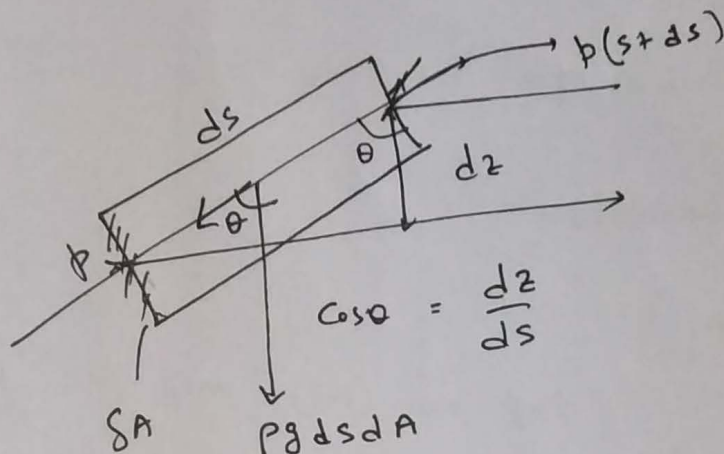 p(s+ds)
ds
θ
dz
θ
p
cosθ = dz/ds
δA
ρgdsdA